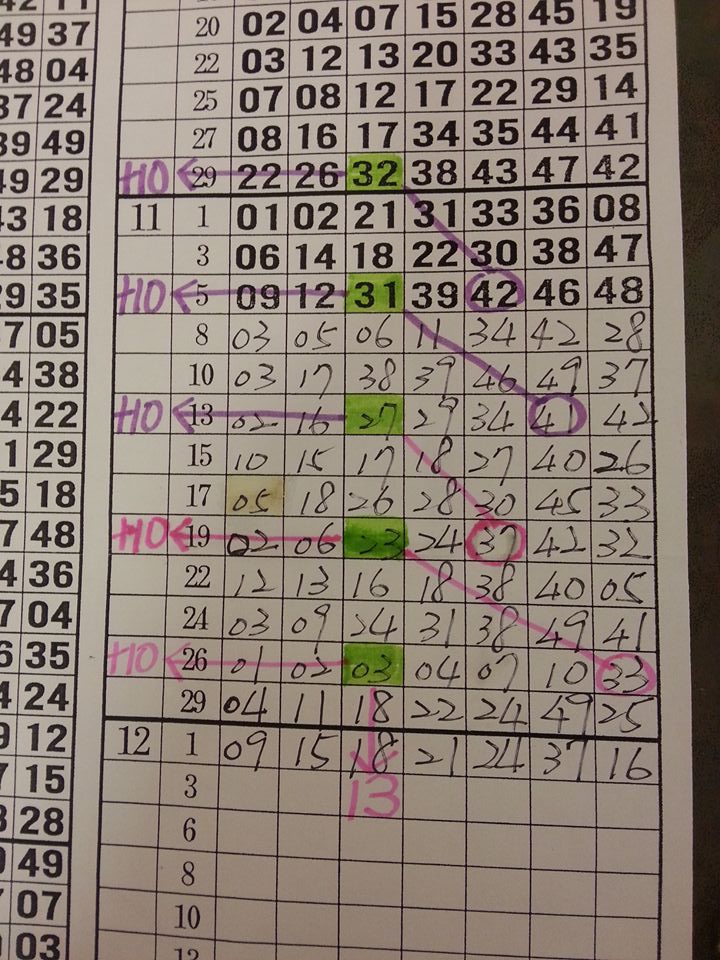 49 37
48 04
37 24
39 49
49 29
43 18
48 36
29 35
7 05
4 38
4 22
1 29
5 18
7 48
4 36
7 04
6 35
4 24
9 12
7 15
8 28
49
07
03
20 02 04 07 15 28 45 19
22 03 12 13 20 33 43 35
25 07 08 12 17 22 29 14
27 08 16 17 34 35 44 41
HO 29 22 26 32 38 43 47 42
11 1 01 02 21 31 33 36 08
3 06 14 18 22 30 38 47
HO 5 09 12 31 39 42 46 48
8 03 05 06 11 34 42 28
10 03 17 38 39 46 49 37
HO 13 02 16 27 29 34 41 42
15 10 15 17 18 27 40 26
17 05 18 26 28 30 45 33
HO 19 02 06 23 24 37 42 32
22 12 13 16 18 38 40 05
24 03 09 24 31 38 49 41
HO 26 01 02 03 04 07 10 33
29 04 11 18 22 24 49 25
12 1 09 15 18 21 24 37 16
3 13
6
8
10